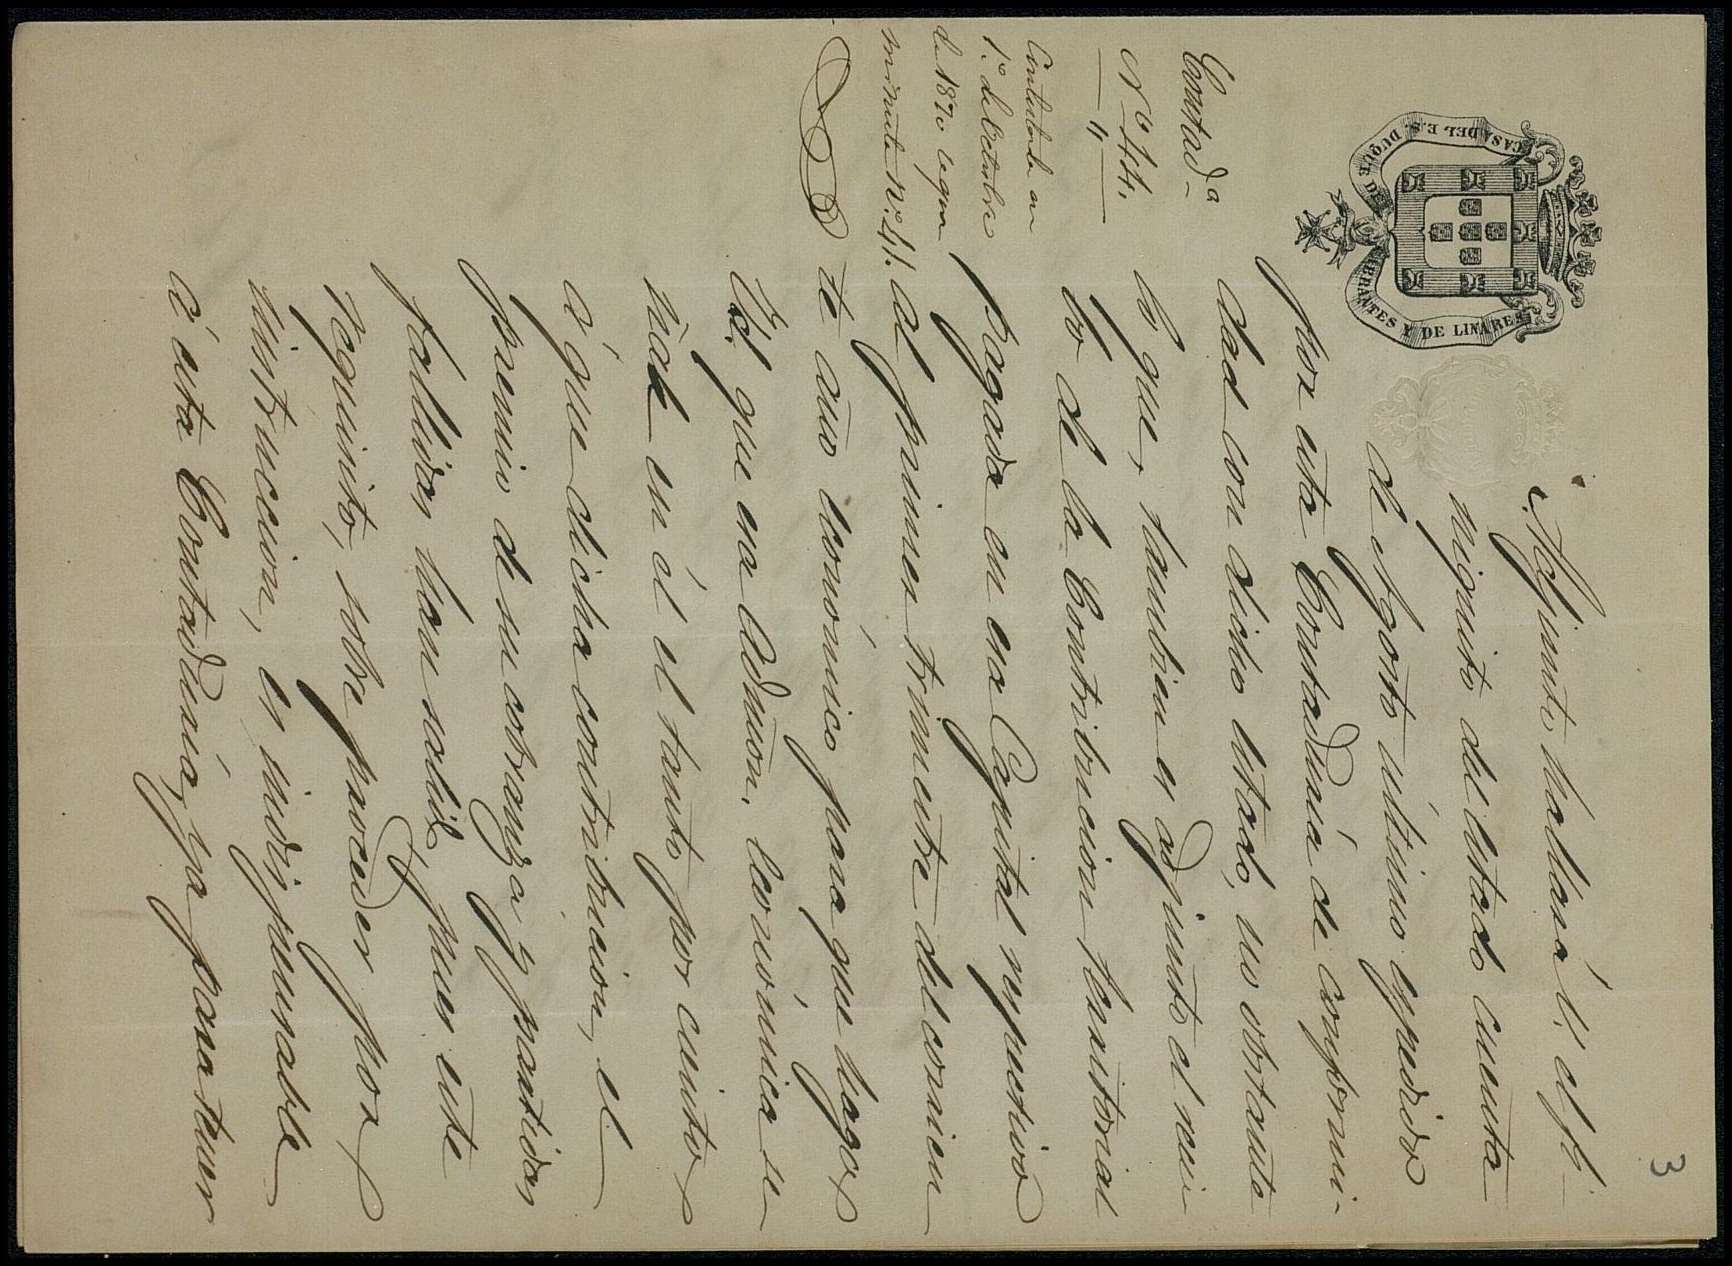 3
CASA DEL E. S. DUQUE DE ABRANTES Y DE LINARES
Contad.ª
Nº 44.
Contestada en
1º de Octubre
de 1870 segun
minuta nº 41.
Adjunto hallará V. el fi-
niquito del estado cuenta
de Agosto último espedido
por esta Contaduria de conformi-
dad con dicho estado, no obstante
lo que, tambien es adjunto el reci-
bo de la Contribucion territorial
pagada en esa Capital respectivo
al primer trimestre del corrien
te año económico para que haga
Vd. que esa Admon. Económica se
ñale en él el tanto por ciento
á que dicha contribucion, el
premio de su cobranza y partidas
fallidas han salido, pues este
requisito, sobre proceder por
instruccion, es indispensable
á esta Contaduría, ya para tener